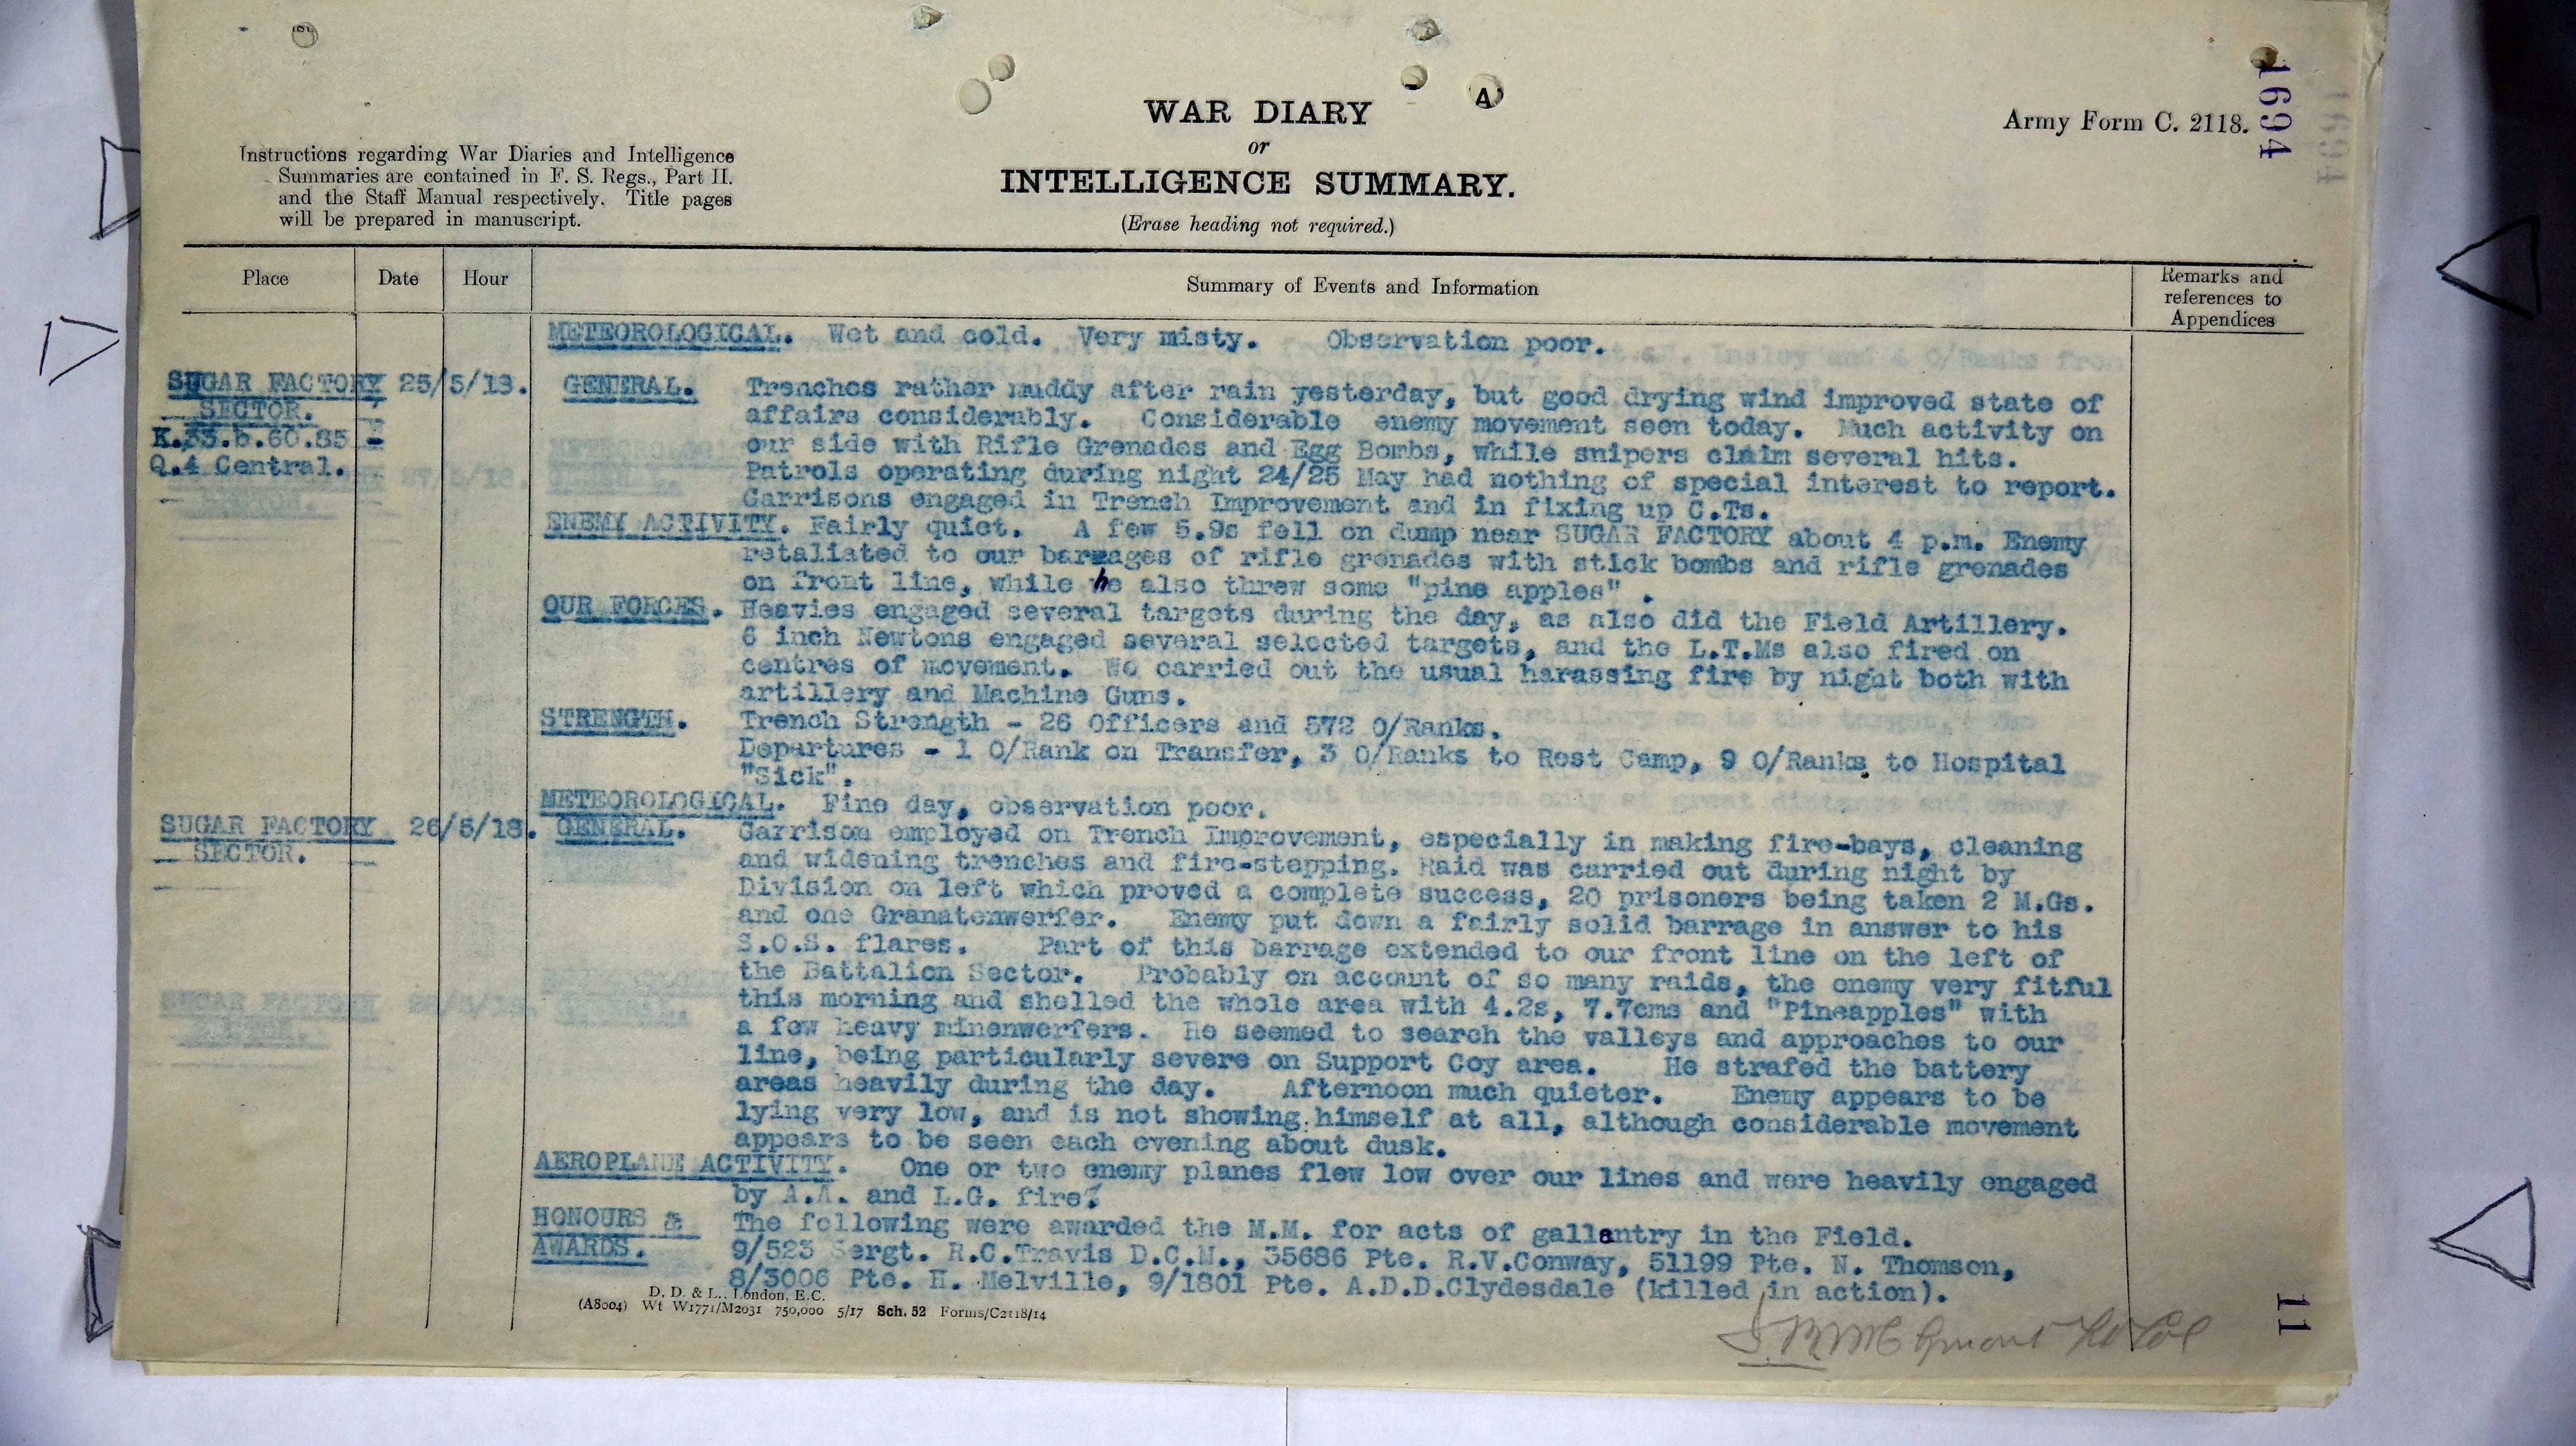 WAR DIARY
or
INTELLIGENCE SUMMARY.
(Erase heading not required.)
Army Form C. 2118.
1694
Instructions regarding War Diaries and Intelligence
Summaries are contained in F. S. Regs., Part II.
and the Staff Manual respectively. Title pages
will be prepared in manuscript.
Place Date Hour Summary of Events and Information Remarks and references to Appendices
METEOROLOGICAL. Wet and cold. Very misty. Observation poor.
SUGAR FACTORY 25/5/18. GENERAL. Trenches rather muddy after rain yesterday, but good drying wind improved state of
SECTOR. affairs considerably. Considerable enemy movement seen today. Much activity on
K.33.b.60.85 - our side with Rifle Grenades and Egg Bombs, while snipers claim several hits.
Q.4 Central. Patrols operating during night 24/25 May had nothing of special interest to report.
Garrisons engaged in Trench Improvement and in fixing up C.Ts.
ENEMY ACTIVITY. Fairly quiet. A few 5.9s fell on dump near SUGAR FACTORY about 4 p.m. Enemy
retaliated to our barrages of rifle grenades with stick bombs and rifle grenades
on front line, while he also threw some "pine apples" .
OUR FORCES. Heavies engaged several targets during the day, as also did the Field Artillery.
6 inch Newtons engaged several selected targets, and the L.T.Ms also fired on
centres of movement. We carried out the usual harassing fire by night both with
artillery and Machine Guns.
STRENGTH. Trench Strength - 26 Officers and 572 O/Ranks.
Departures - 1 O/Rank on Transfer, 3 O/Ranks to Rest Camp, 9 O/Ranks to Hospital
"Sick".
METEOROLOGICAL. Fine day, observation poor.
SUGAR FACTORY 26/5/18. GENERAL. Garrison employed on Trench Improvement, especially in making fire-bays, cleaning
SECTOR. and widening trenches and fire-stepping. Raid was carried out during night by
Division on left which proved a complete success, 20 prisoners being taken 2 M.Gs.
and one Granatenwerfer. Enemy put down a fairly solid barrage in answer to his
S.O.S. flares. Part of this barrage extended to our front line on the left of
the Battalion Sector. Probably on account of so many raids, the enemy very fitful
this morning and shelled the whole area with 4.2s, 7.7cms and "Pineapples" with
a few heavy minenwerfers. He seemed to search the valleys and approaches to our
line, being particularly severe on Support Coy area. He strafed the battery
areas heavily during the day. Afternoon much quieter. Enemy appears to be
lying very low, and is not showing himself at all, although considerable movement
appears to be seen each evening about dusk.
AEROPLANE ACTIVITY. One or two enemy planes flew low over our lines and were heavily engaged
by A.A. and L.G. fire.
HONOURS & The following were awarded the M.M. for acts of gallantry in the Field.
AWARDS. 9/523 Sergt. R.C.Travis D.C.M., 35686 Pte. R.V.Conway, 51199 Pte. N. Thomson,
8/3006 Pte. H. Melville, 9/1801 Pte. A.D.D.Clydesdale (killed in action).
D. D. & L., London, E.C.
(A8004) Wt W1771/M2031 750,000 5/17 Sch. 52 Forms/C2118/14
11